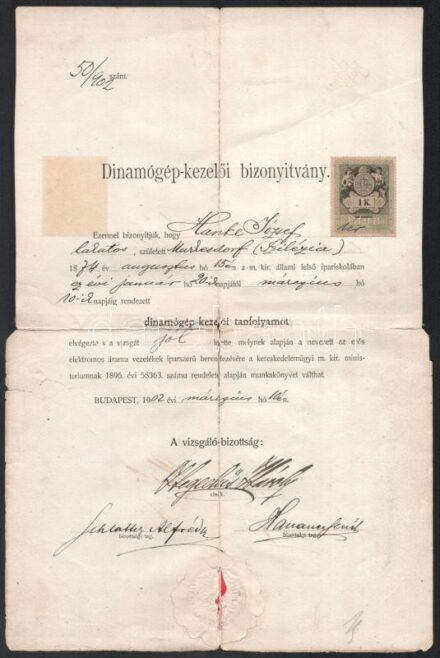 50/902 szám.
Dinamógép-kezelői bizonyitvány.
1 K
Ezennel bizonyitjuk, hogy Hanke József
lakatos, született Murkesdorf (Szilézia)
1874 év augusztus hó 15én a m. kir. állami felső ipariskolában
ez évi január hó 20-ik napjától márczius hó
10-ik napjáig rendezett
dinamógép-kezelői tanfolyamot
elvégezte s a vizsgát jól letette melynek alapján a nevezett az erős
elektromos áramu vezetékek iparszerü berendezésére a kereskedelemügyi m. kir. minis-
teriumnak 1896. évi 58363. számu rendelete alapján munkakönyvet válthat.
BUDAPEST, 1902 évi márczius hó 10én.
A vizsgáló-bizottság:
Hegedűs Károly
elnök.
Schlotter Alfréd
bizottsági tag.
bizottsági tag.